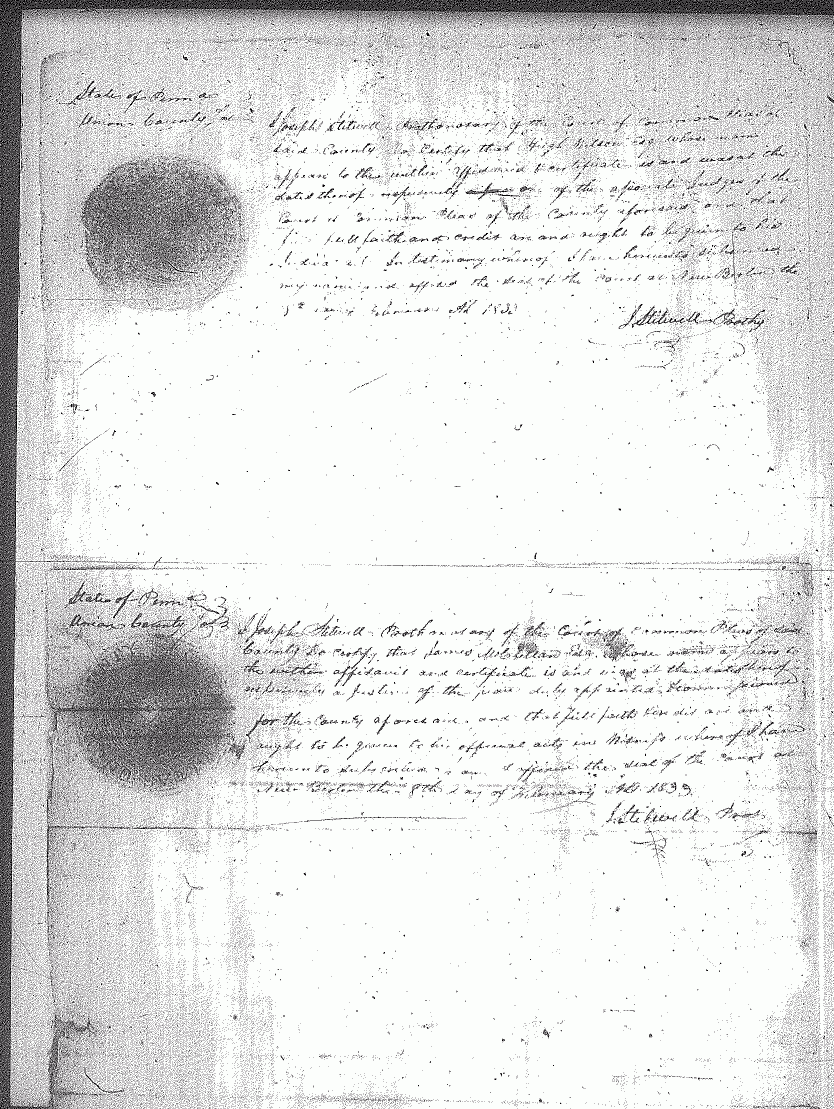 State of Penna
Union County, ss
I Joseph Stitwell Prothonotary of the Court of Common Pleas of
said County Do Certify that Hugh Wilson Esq whose name
appear to the within affidavit & certificate is and was at the
dates thereof respectively of the associate Judges of the
Court of Common Pleas of the County aforesaid and that
full faith and credit are and ought to be given to his
In testimony whereof I have hereunto subscribed
my name and affixed the seal of the Court at New Berlin the
day of February AD 1833
J. Stitwell Prothy
State of Penna
Union County ss
I Joseph Stitwell Prothonotary of the Court of Common Pleas of said
County Do certify that James McClellan Esq. whose name appears to
the within affidavit and certificate is and was at the dates thereof
respectively a Justice of the peace duly appointed & commissioned
for the County aforesaid and that full faith & credit are and
ought to be given to his official acts in Witness whereof I have
hereunto subscribed and affixed the seal of the Court at
New Berlin the 8th day of February AD. 1833
J. Stitwell Proth